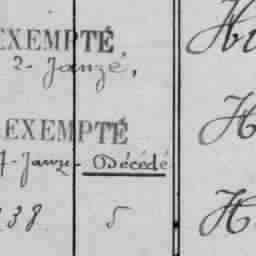 EXEMPTÉ.
2 - Janzé.
EXEMPTÉ
7 - Janzé - Décédé
38 5